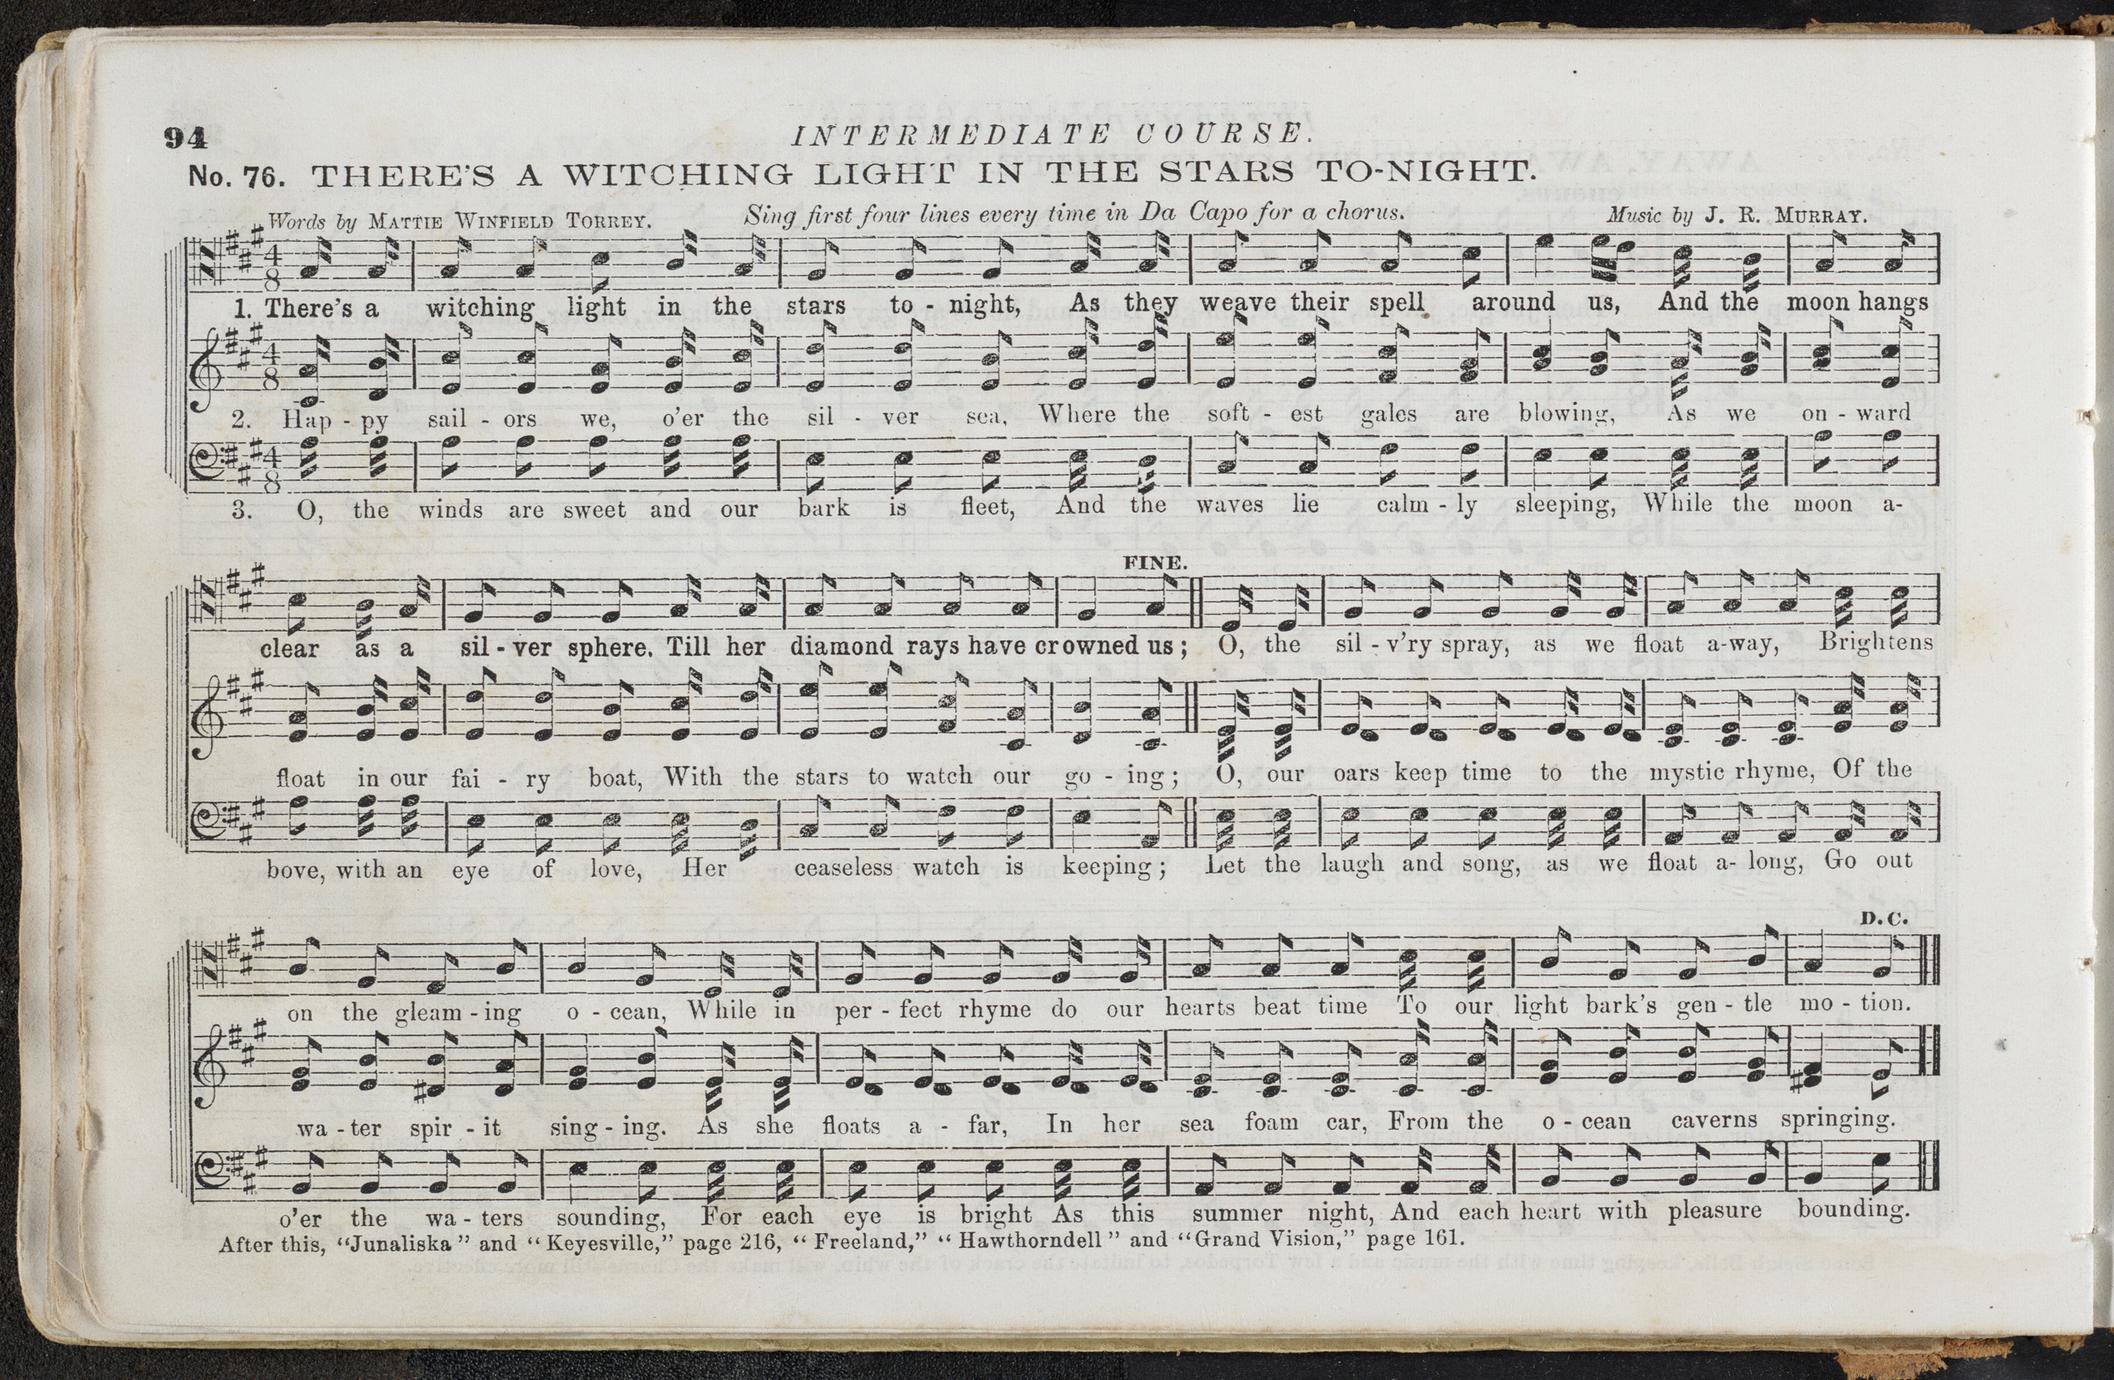 94
INTERMEDIATE COURSE.
No. 76. THERE'S A WITCHING LIGHT IN THE STARS TO-NIGHT.
Words by MATTIE WINFIELD TORREY. Sing first four lines every time in Da Capo for a chorus. Music by J. R. MURRAY.
4 8
1. There's a witching light in the stars to - night, As they weave their spell around us, And the moon hangs
4 8
2. Hap - py sail - ors we, o'er the sil - ver sea, Where the soft - est gales are blowing, As we on - ward
4 8
3. O, the winds are sweet and our bark is fleet, And the waves lie calm - ly sleeping, While the moon a-
FINE.
clear as a sil - ver sphere. Till her diamond rays have crowned us ; O, the sil - v'ry spray, as we float a-way, Brightens
float in our fai - ry boat, With the stars to watch our go - ing ; O, our oars keep time to the mystic rhyme, Of the
bove, with an eye of love, Her ceaseless watch is keeping ; Let the laugh and song, as we float a- long, Go out
D.C.
on the gleam - ing o - cean, While in per - fect rhyme do our hearts beat time To our light bark's gen - tle mo - tion.
wa - ter spir - it sing - ing. As she floats a - far, In her sea foam car, From the o - cean caverns springing.
o'er the wa - ters sounding, For each eye is bright As this summer night, And each heart with pleasure bounding.
After this, "Junaliska" and "Keyesville," page 216, "Freeland," "Hawthorndell" and "Grand Vision," page 161.